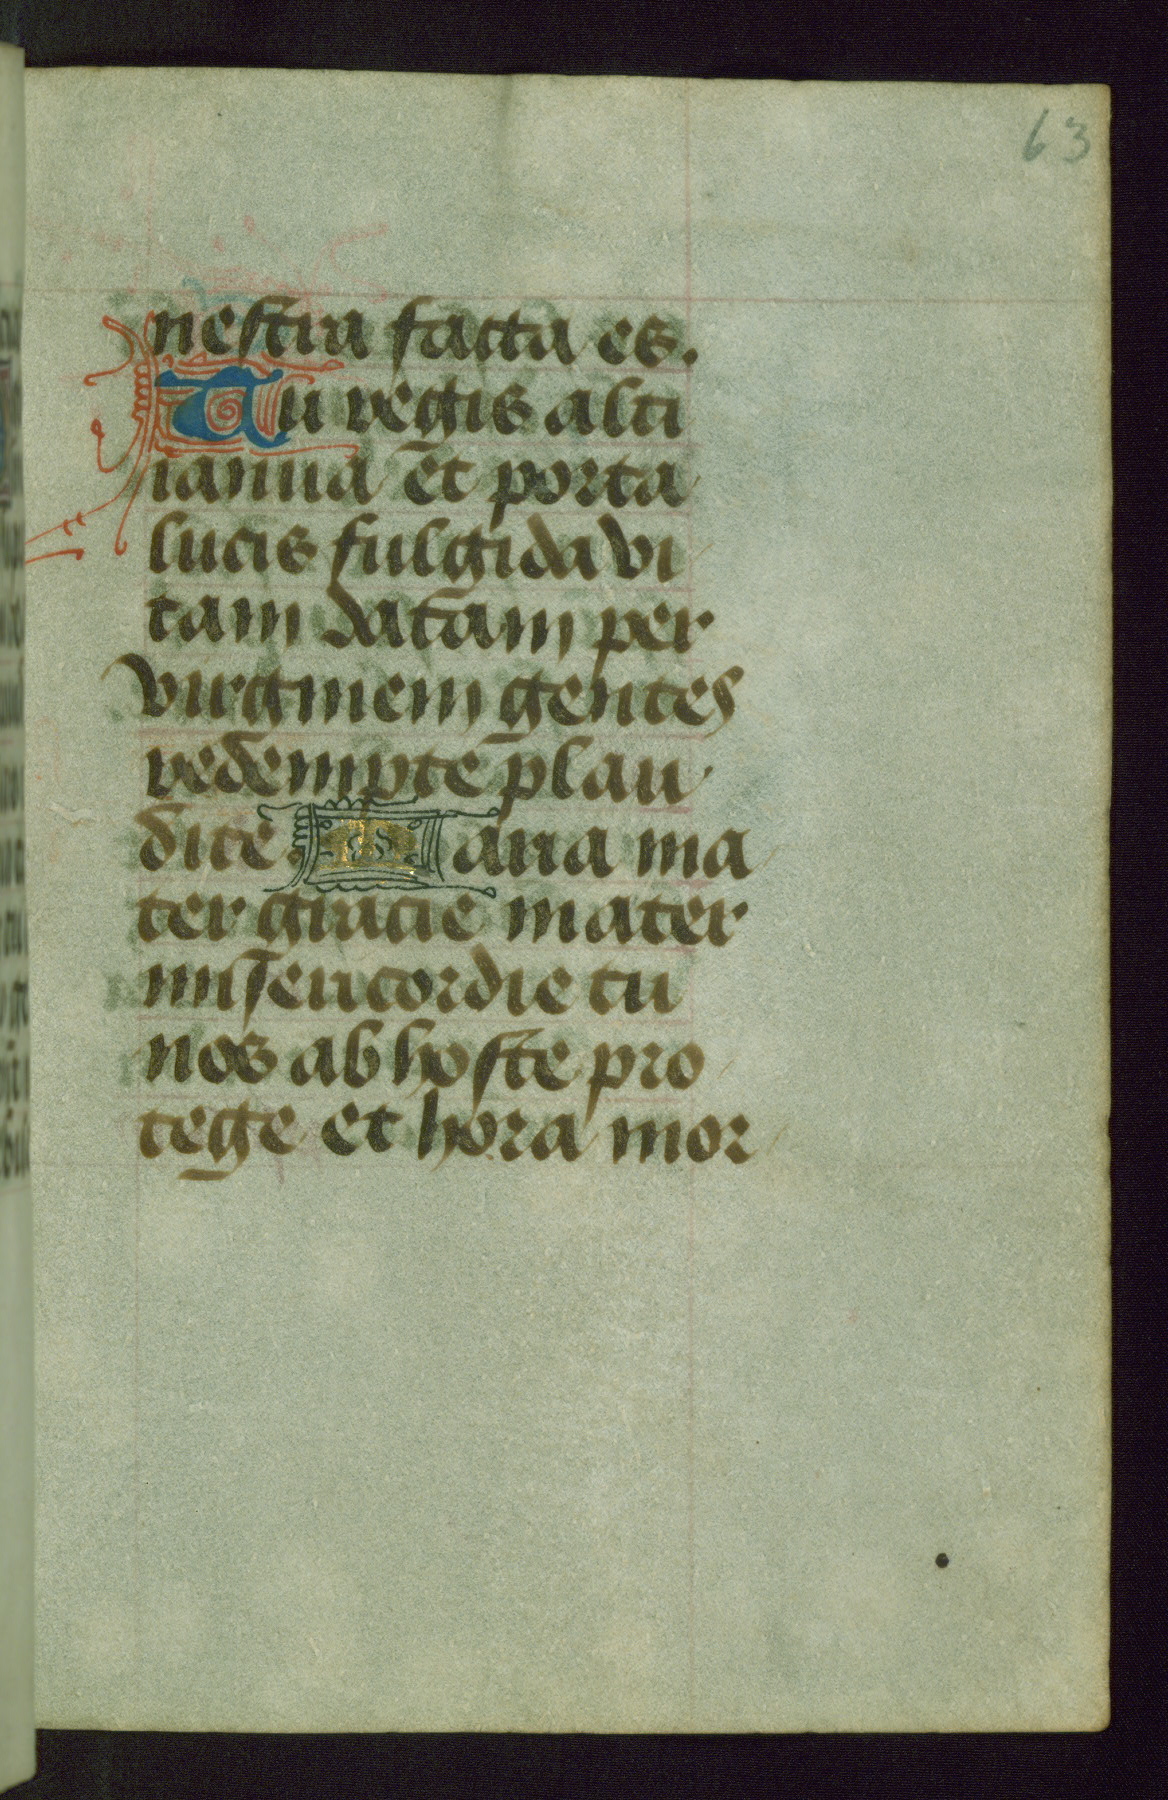 63
nestra facta es.
Tu regis alti
ianua et porta
lucis fulgida vi
tam datam per
virginem gentes
redempte plau
dite. Maria ma
ter gracie mater
misericordie tu
nos ab hoste pro
tege et hora mor